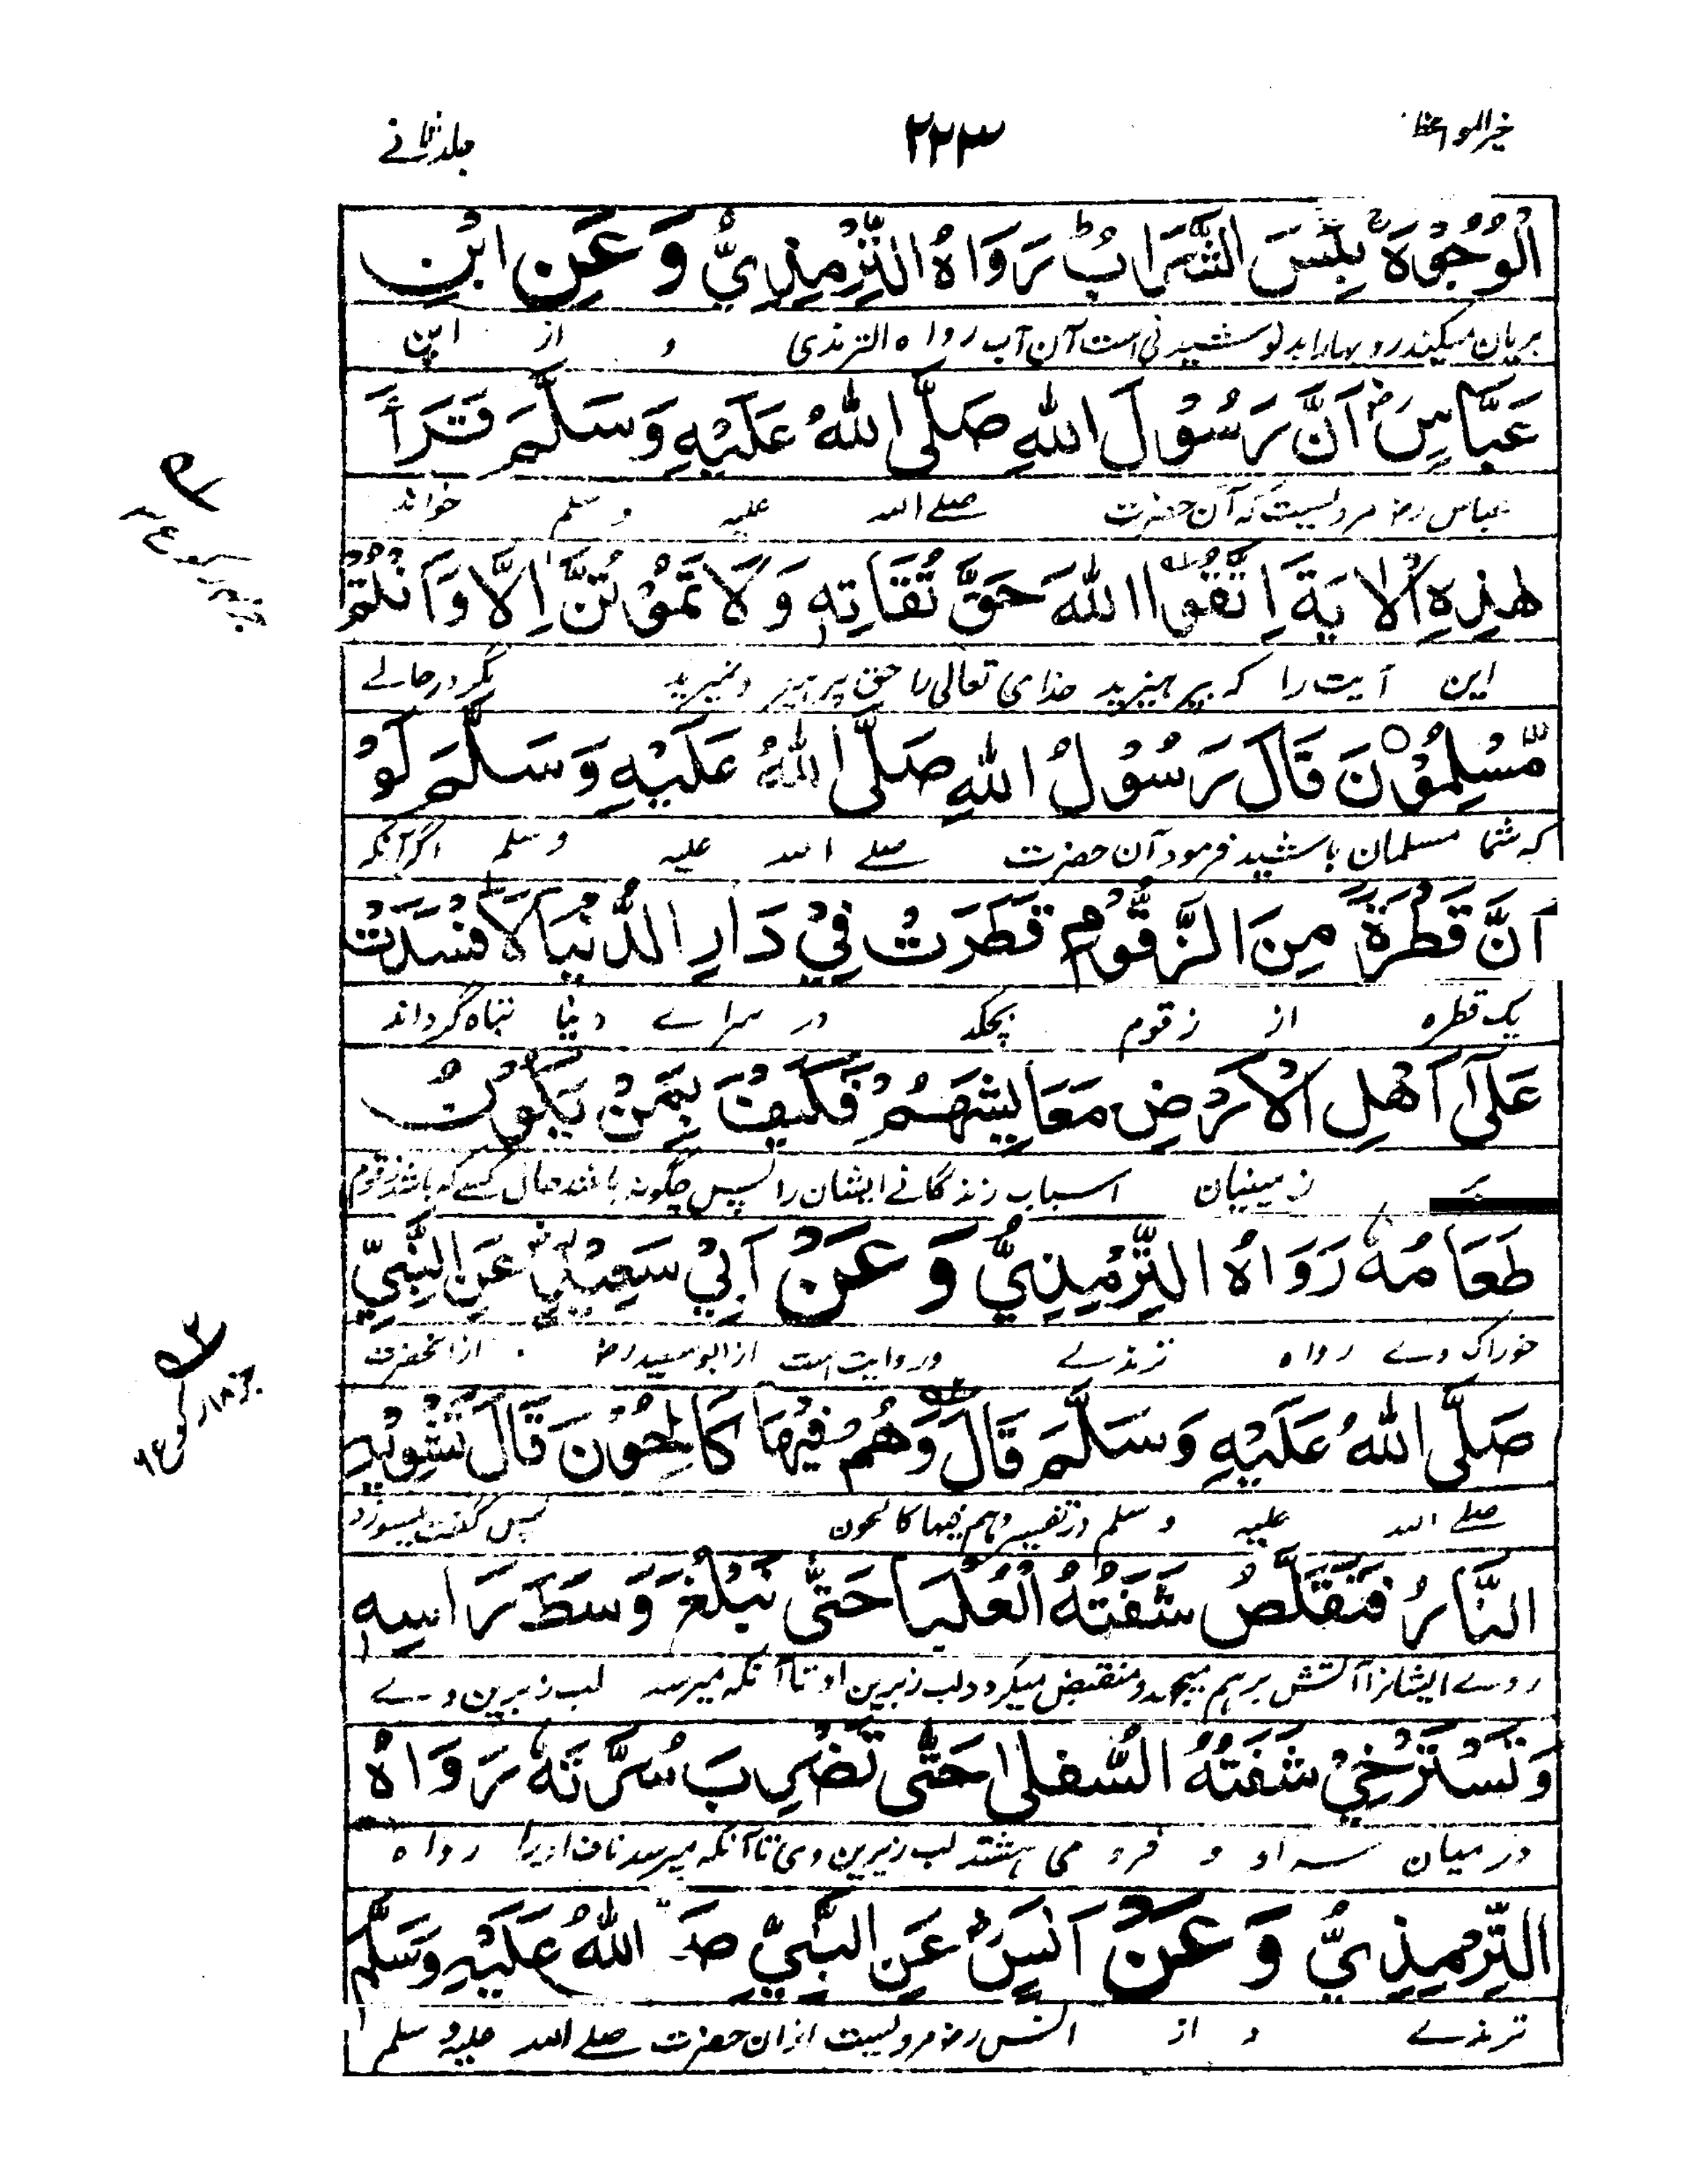 خیر المواعظ ۲۲۳ جلد ثانے
الْوُجُوْهَ بِئْسَ الشَّرَابُ ط رَوَاهُ التِّرْمِذِيُّ وَعَنِ ابْنِ
بریان میکند رویہارا بد نوشیدنی است آن آب رواہ الترمذی و از ابن
عَبَّاسٍ رض اَنَّ رَسُوْلَ اللهِ صَلَّى اللهُ عَلَيْهِ وَسَلَّمَ قَرَأَ
عباس رض مرویست کہ آن حضرت صلے اللہ علیہ و سلم خواند
هٰذِهِ الْاٰيَةَ اِتَّقُوا اللهَ حَقَّ تُقَاتِهٖ وَلَا تَمُوْتُنَّ اِلَّا وَاَنْتُمْ
این آیت را کہ پرہیزید خدای تعالی را حق پرہیز و نمیرید مگر در حالے
مُّسْلِمُوْنَ قَالَ رَسُوْلُ اللهِ صَلَّى اللهُ عَلَيْهِ وَسَلَّمَ لَوْ
کہ شما مسلمان باشید فرمود آن حضرت صلے اللہ علیہ و سلم اگر آنکہ
اَنَّ قَطْرَةً مِنَ الزَّقُّوْمِ قَطَرَتْ فِيْ دَارِ الدُّنْيَا لَاَفْسَدَتْ
یک قطرہ از زقوم بچکد در سراے دنیا تباہ گرداند
عَلٰى اَهْلِ الْاَرْضِ مَعَايِشَهُمْ فَكَيْفَ بِمَنْ يَكُوْنُ
بر زمینیان اسباب زندگانے ایشان را پس چگونہ باشد حال کسے کہ باشد زقوم
طَعَامُهٗ رَوَاهُ التِّرْمِذِيُّ وَعَنْ اَبِيْ سَعِيْدٍ رض عَنِ النَّبِيِّ
خوراک وے رواہ ترمذے و روایت است از ابو سعید رض از آنحضرت
صَلَّى اللهُ عَلَيْهِ وَسَلَّمَ قَالَ وَهُمْ فِيْهَا كَالِحُوْنَ قَالَ تَشْوِيْهِ
صلے اللہ علیہ و سلم در تفسیر وہم فیہا کالحون پس گفت میسوزد
النَّارُ فَتَقَلَّصُ شَفَتُهُ الْعُلْيَا حَتّٰى تَبْلُغَ وَسَطَ رَاْسِهٖ
روے ایشانرا آتش برہم میپچد و منقبض میگردد لب زبرین او تا آنکہ میرسد لب زبرین وے
وَتَسْتَرْخِيْ شَفَتُهُ السُّفْلٰى حَتّٰى تَضْرِبَ سُرَّتَهٗ رَوَاهُ
در میان سر او و فرو می ہشتد لب زیرین وی تا آنکہ میرسد ناف اویرا رواہ
التِّرْمِذِيُّ وَعَنْ اَنَسٍ رض عَنِ النَّبِيِّ صَلَّى اللهُ عَلَيْهِ وَسَلَّمَ
ترمذے و از انس رض مرویست از ان حضرت صلے اللہ علیہ و سلم